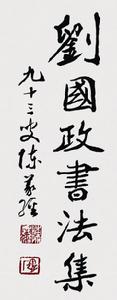 劉國政書法集
九十三叟陳義經